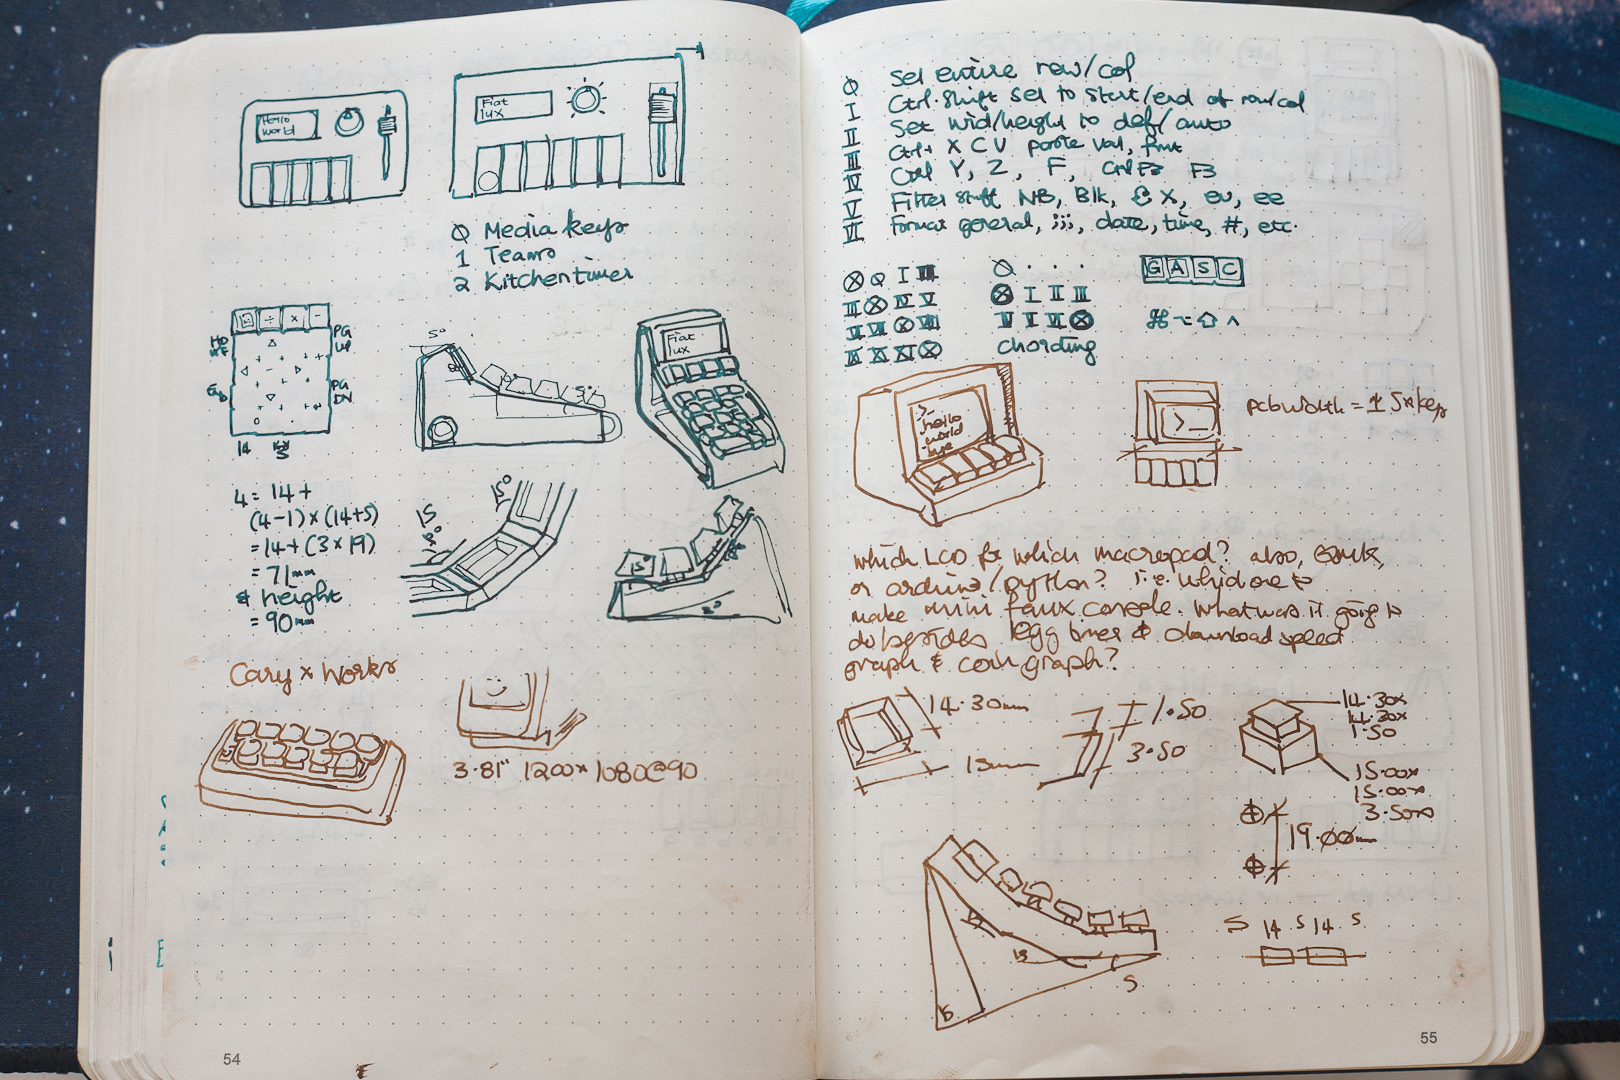 Hello
World
Fiat
lux
0 Media keys
1 Teams
2 Kitchen timer
PG
UP
PG
DN
14
5°
Fiat
lux
4 = 14 +
(4-1) × (14+5)
= 14 + (3 × 19)
= 71mm
& height
= 90mm
15
15°
15°
Cary × Works
3.81" 1200 × 1080@90
54
0 Sel entire row/col
I Ctrl. Shift sel to start/end of row/col
II Set wid/height to def/auto
III Ctrl+ X C V paste val, fmt
IV Ctrl Y, Z, F, Ctrl F3 F3
V Filter shift NB, Blk, £ X, eu, ee
VI Format general, ;;;, date, time, #, etc.
G A S C
⌘ ⌥ ⇧ ^
chording
>_
hello
world
>_
pcb width = 1 5× key
which LCD for which macropad? also, QMK,
or arduino/python? i.e. which one to
make mini faux console. What was it going to
do besides egg timer & download speed
graph & coin graph?
14.30mm
15mm
1.50
3.50
14.30×
14.30×
1.50
15.00×
15.00×
3.50
19.00mm
15
5
5 14 5 14 5
55